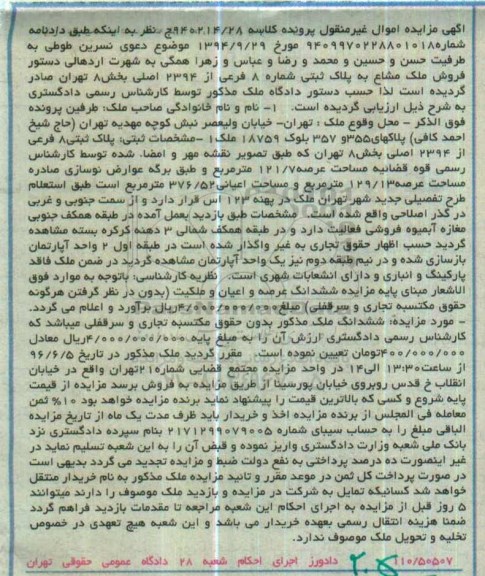 آگهی مزایده اموال غیرمنقول پرونده کلاسه ۹۴۰۲۱۴/۲۸ج نظر به اینکه طبق دادنامه
شماره۹۴۰۹۹۷۰۲۲۸۸۰۱۰۱۸ مورخ ۱۳۹۴/۹/۲۹ موضوع دعوی نسرین طوطی به
طرفیت حسن و حسین و محمد و رضا و عباس و زهرا همگی به شهرت اردهالی دستور
فروش ملک مشاع به پلاک ثبتی شماره ۸ فرعی از ۲۳۹۴ اصلی بخش۸ تهران صادر
گردیده است لذا حسب دستور دادگاه ملک مذکور توسط کارشناس رسمی دادگستری
به شرح ذیل ارزیابی گردیده است. ۱- نام و نام خانوادگی صاحب ملک: طرفین پرونده
فوق الذکر - محل وقوع ملک : تهران- خیابان ولیعصر نبش کوچه مهدیه تهران (حاج شیخ
احمد کافی) پلاکهای۳۵۵و ۳۵۷ بلوک ۱۸۷۵۹ ملک۱ -مشخصات ثبتی: پلاک ثبتی۸ فرعی
از ۲۳۹۴ اصلی بخش۸ تهران که طبق تصویر نقشه مهر و امضا، شده توسط کارشناس
رسمی قوه قضائیه مساحت عرصه۱۲۱/۷ مترمربع و طبق برگه عوارض نوسازی صادره
مساحت عرصه۱۲۹/۱۳ مترمربع و مساحت اعیانی۳۷۶/۵۲ مترمربع است طبق استعلام
طرح تفصیلی جدید شهر تهران ملک در پهنه ۱۲۳ اس قرار دارد و از سمت جنوبی و غربی
در گذر اصلاحی واقع شده است. مشخصات طبق بازدید بعمل آمده در طبقه همکف جنوبی
مغازه آبمیوه فروشی فعالیت دارد و در طبقه همکف شمالی ۳ دهنه کرکره بسته مشاهده
گردید حسب اظهار حقوق تجاری به غیر واگذار شده است در طبقه اول ۲ واحد آپارتمان
بازسازی شده و در نیم طبقه دوم نیز یک واحد آپارتمان مشاهده گردید در ضمن ملک فاقد
پارکینگ و انباری و دارای انشعابات شهری است. نظریه کارشناسی: باتوجه به موارد فوق
الاشعار مبنای پایه مزایده ششدانگ عرصه و اعیان و ملکیت (بدون در نظر گرفتن هرگونه
حقوق مکتسبه تجاری و سرقفلی) مبلغ۴/۰۰۰/۰۰۰/۰۰۰ریال برآورد و اعلام می گردد.
- مورد مزایده: ششدانگ ملک مذکور بدون حقوق مکتسبه تجاری و سرقفلی میباشد که
کارشناس رسمی دادگستری ارزش آن را به مبلغ پایه ۴/۰۰۰/۰۰۰/۰۰۰ریال معادل
۴۰۰/۰۰۰/۰۰۰تومان تعیین نموده است. مقرر گردید ملک مذکور در تاریخ ۹۶/۶/۵
از ساعت۱۳:۳۰ الی۱۴ در واحد مزایده مجتمع قضایی شماره۲۱تهران واقع در خیابان
انقلاب خ قدس روبروی خیابان پورسینا از طریق مزایده به فروش برسد مزایده از قیمت
پایه شروع و کسی که بالاترین قیمت را پیشنهاد نماید برنده مزایده خواهد بود ۱۰% ثمن
معامله فی المجلس از برنده مزایده اخذ و خریدار باید ظرف مدت یک ماه از تاریخ مزایده
الباقی مبلغ را به حساب سیبای شماره ۲۱۷۱۲۹۹۰۷۹۰۰۵ بنام سپرده دادگستری نزد
بانک ملی شعبه وزارت دادگستری واریز نموده و قبض آن را به این شعبه تسلیم نماید در
غیر اینصورت ده درصد پرداختی به نفع دولت ضبط و مزایده تجدید می گردد بدیهی است
در صورت پرداخت کل ثمن در موعد مقرر و تائید مزایده ملک مذکور به نام خریدار منتقل
خواهد شد کسانیکه تمایل به شرکت در مزایده و بازدید ملک موصوف را دارند میتوانند
۵ روز قبل از مزایده به اجرای احکام این شعبه مراجعه تا مقدمات بازدید فراهم گردد
ضمنا هزینه انتقال رسمی بعهده خریدار می باشد و این شعبه هیچ تعهدی در خصوص
تخلیه و تحویل ملک موصوف ندارد.
۱۱۰/۵۰۵۰۷ دادورز اجرای احکام شعبه ۲۸ دادگاه عمومی حقوقی تهران